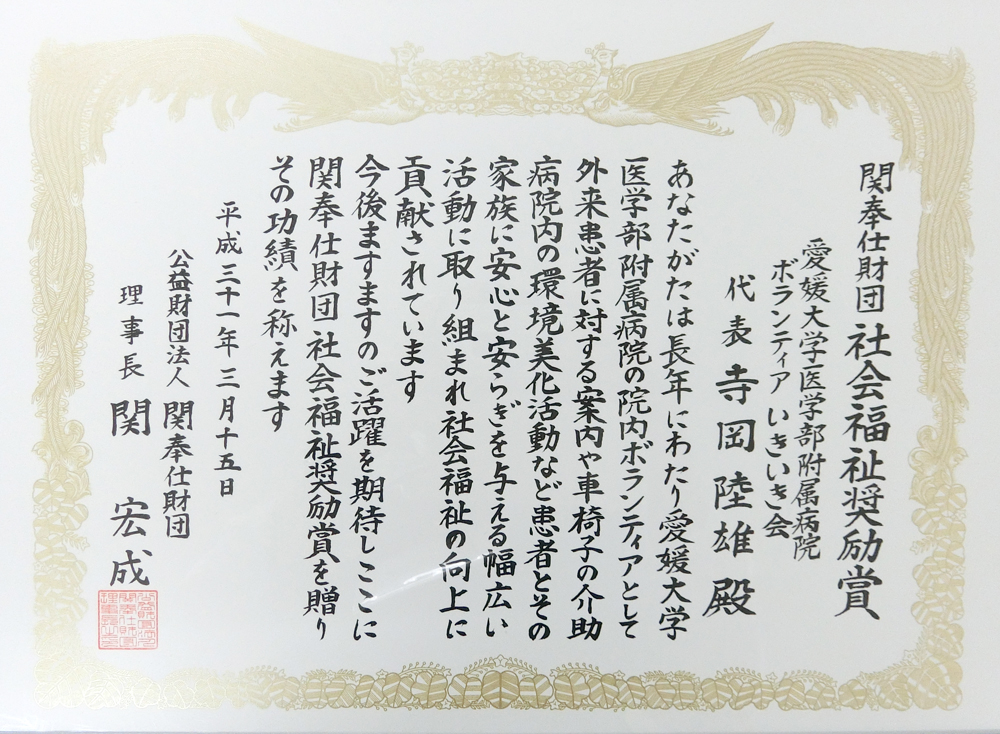 関奉仕財団 社会福祉奨励賞
愛媛大学医学部附属病院
ボランティア いきいき会
代表 寺岡 陸雄 殿
あなたがたは長年にわたり愛媛大学
医学部附属病院の院内ボランティアとして
外来患者に対する案内や車椅子の介助
病院内の環境美化活動など患者とその
家族に安心と安らぎを与える幅広い
活動に取り組まれ社会福祉の向上に
貢献されています
今後ますますのご活躍を期待しここに
関奉仕財団 社会福祉奨励賞を贈り
その功績を称えます
平成三十一年三月十五日
公益財団法人 関奉仕財団
理事長 関 宏成